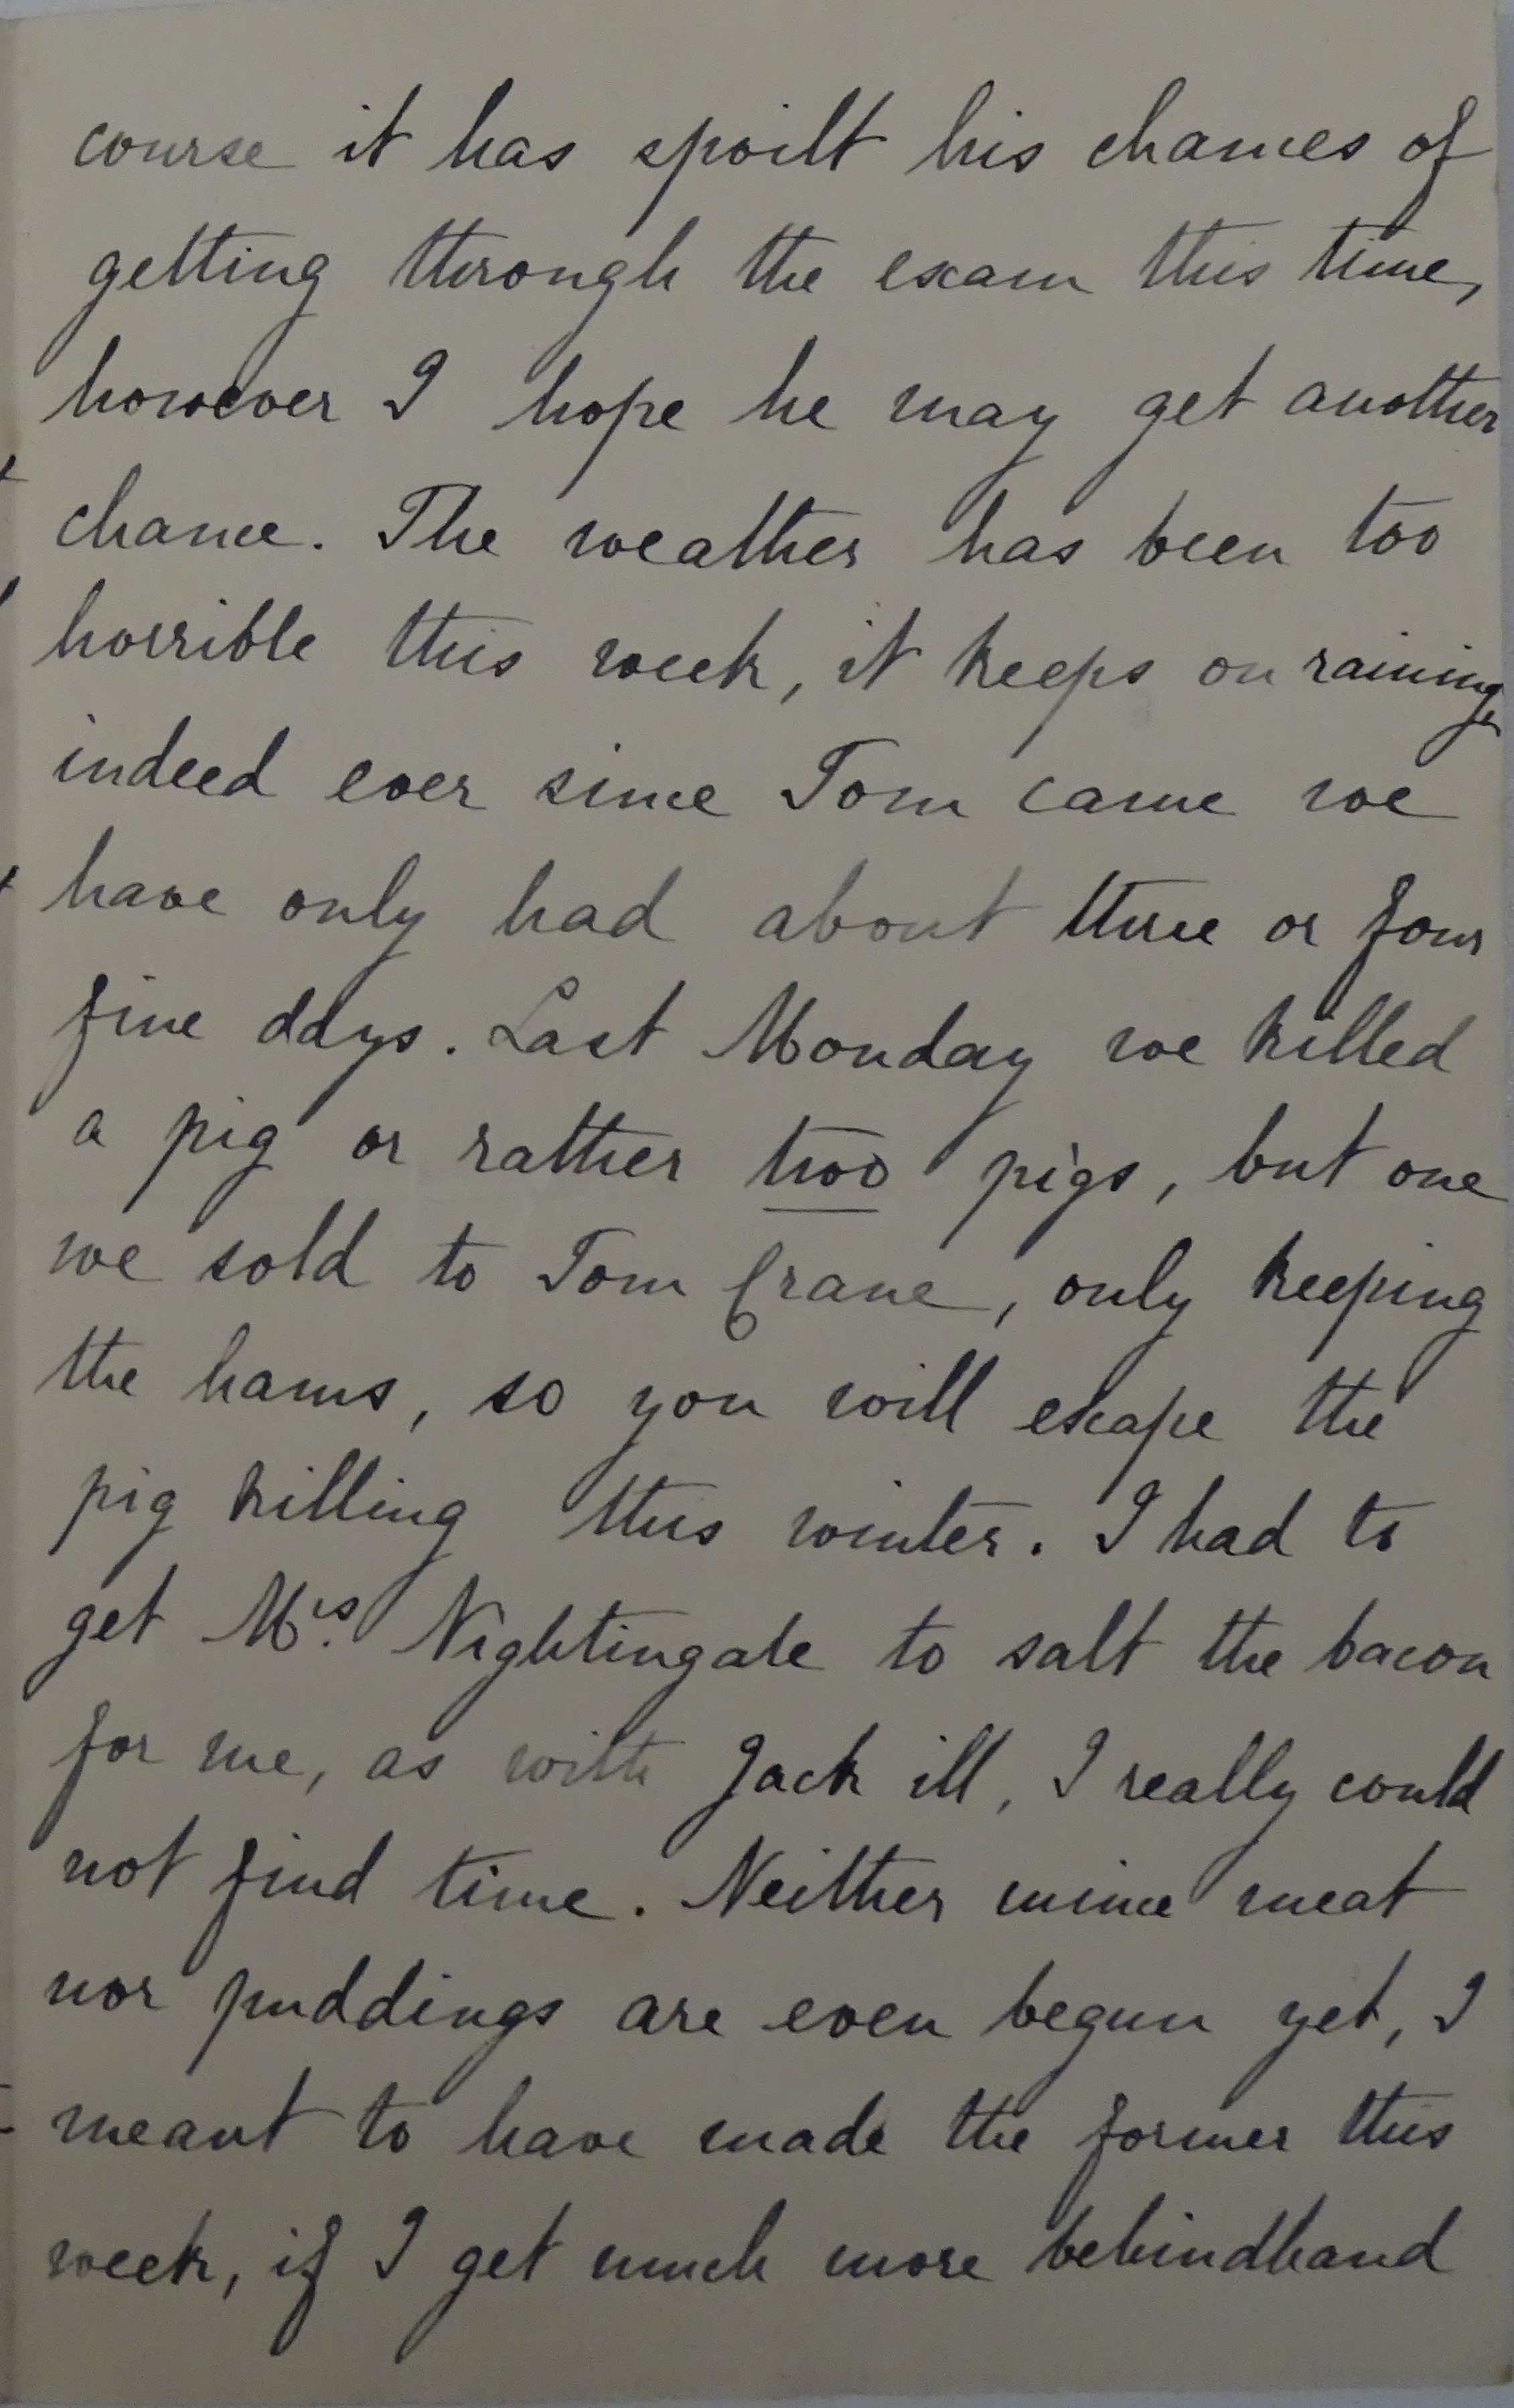 course it has spoilt his chances of
getting through the exam this time,
however I hope he may get another
chance. The weather has been too
horrible this week, it keeps on raining,
indeed ever since Tom came we
have only had about three or four
fine days. Last Monday we killed
a pig or rather two pigs, but one
we sold to Tom Crane, only keeping
the hams, so you will escape the
pig killing this winter. I had to
get Mrs. Nightingale to salt the bacon
for me, as with Jack ill, I really could
not find time. Neither mince meat
nor puddings are even begun yet, I
meant to have made the former this
week, if I get much more behindhand